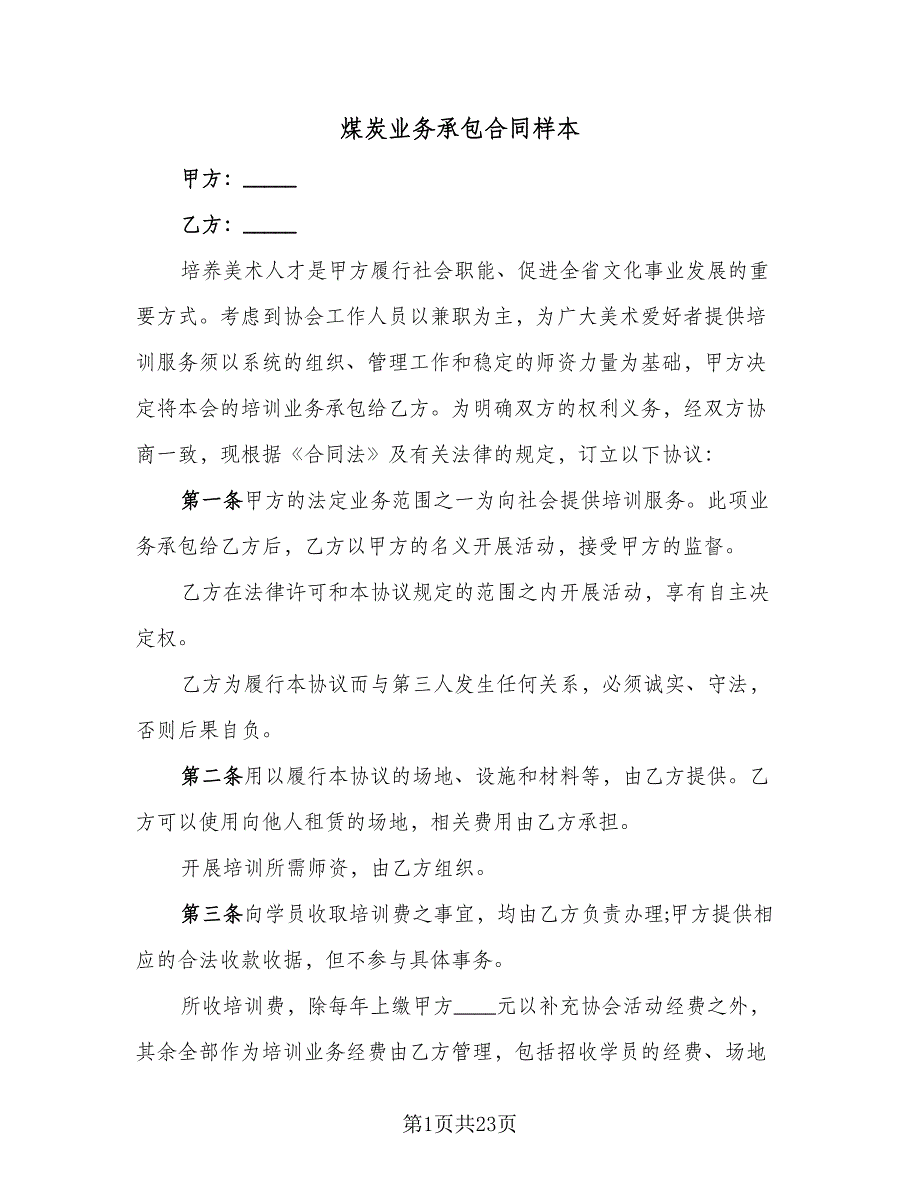 煤炭业务承包合同样本
甲方：_____
乙方：_____
培养美术人才是甲方履行社会职能、促进全省文化事业发展的重
要方式。考虑到协会工作人员以兼职为主，为广大美术爱好者提供培
训服务须以系统的组织、管理工作和稳定的师资力量为基础，甲方决
定将本会的培训业务承包给乙方。为明确双方的权利义务，经双方协
商一致，现根据《合同法》及有关法律的规定，订立以下协议：
第一条甲方的法定业务范围之一为向社会提供培训服务。此项业
务承包给乙方后，乙方以甲方的名义开展活动，接受甲方的监督。
乙方在法律许可和本协议规定的范围之内开展活动，享有自主决
定权。
乙方为履行本协议而与第三人发生任何关系，必须诚实、守法，
否则后果自负。
第二条用以履行本协议的场地、设施和材料等，由乙方提供。乙
方可以使用向他人租赁的场地，相关费用由乙方承担。
开展培训所需师资，由乙方组织。
第三条向学员收取培训费之事宜，均由乙方负责办理;甲方提供相
应的合法收款收据，但不参与具体事务。
所收培训费，除每年上缴甲方____元以补充协会活动经费之外，
其余全部作为培训业务经费由乙方管理，包括招收学员的经费、场地
第1页共23页